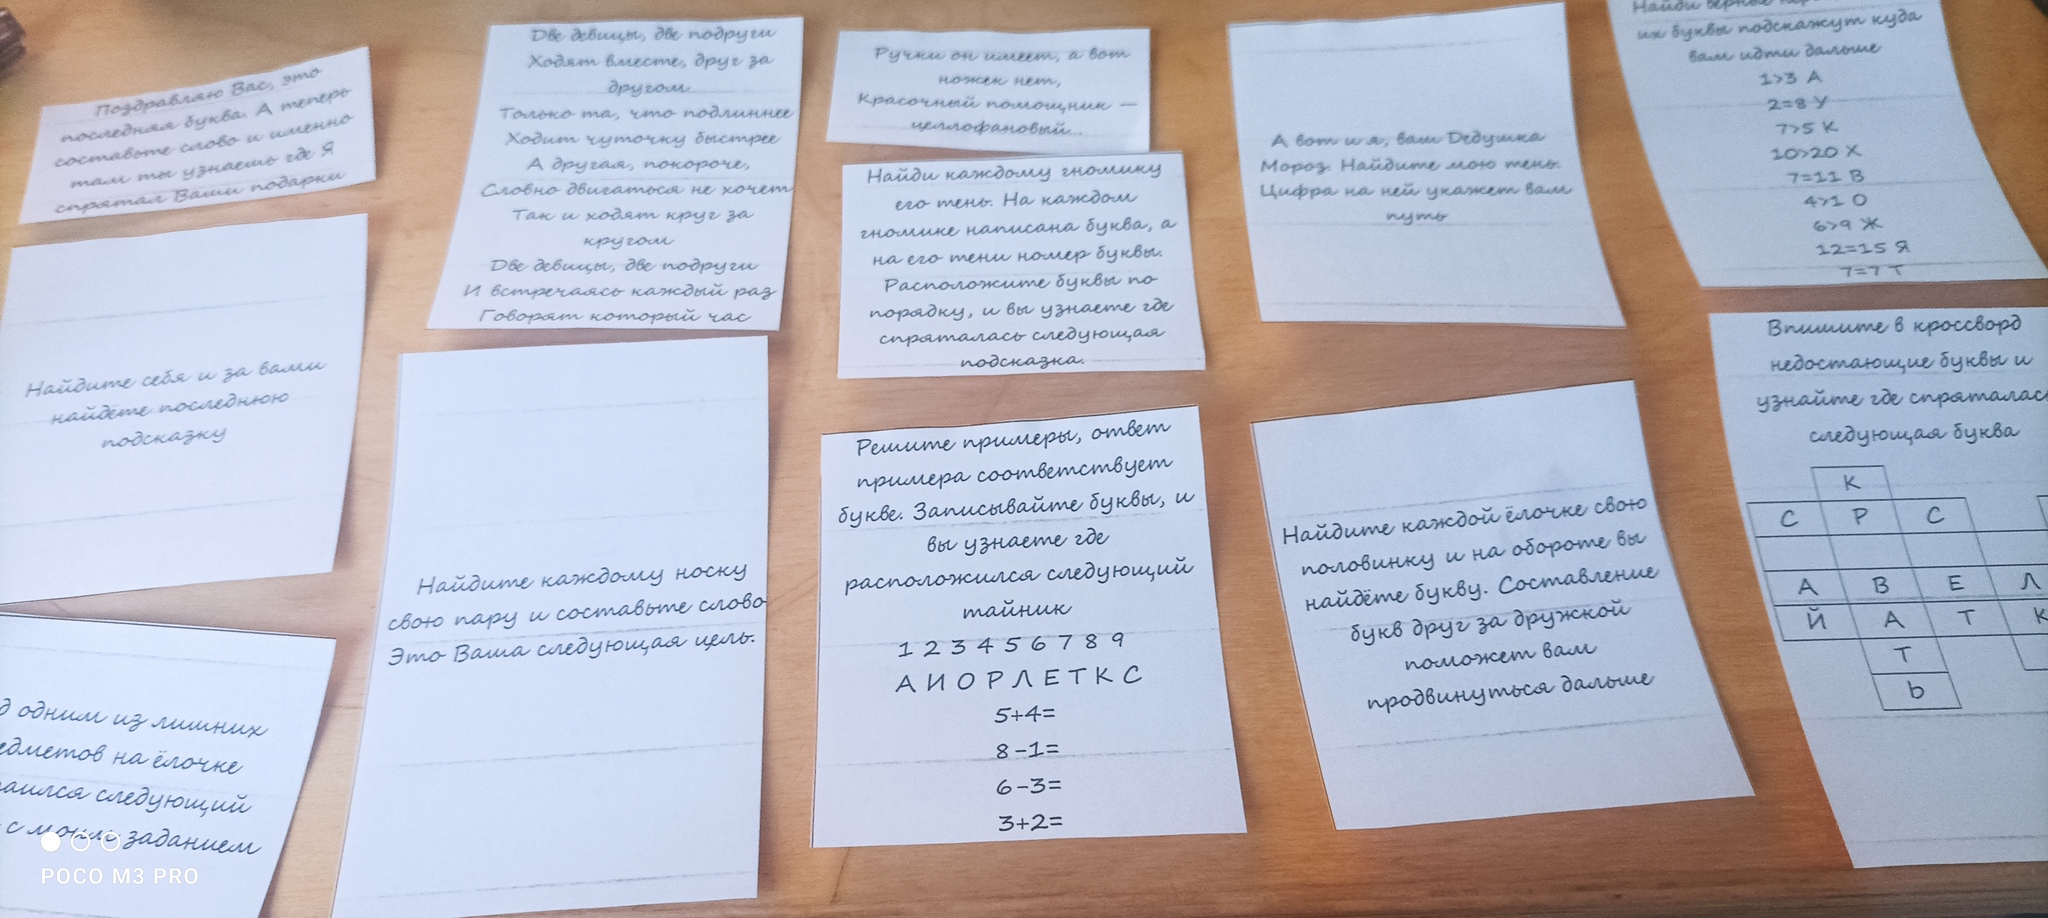 Поздравляю Вас, это
последняя буква. А теперь
составьте слово и именно
там ты узнаешь где Я
спрятал Ваши подарки
Две девицы, две подруги
Ходят вместе, друг за
другом
Только та, что подлиннее
Ходит чуточку быстрее
А другая, покороче,
Словно двигаться не хочет
Так и ходят круг за
кругом
Две девицы, две подруги
И встречаясь каждый раз
Говорят который час
Ручки он имеет, а вот
ножек нет,
Красочный помощник —
целлофановый...
Найди каждому гномику
его тень. На каждом
гномике написана буква, а
на его тени номер буквы.
Расположите буквы по
порядку, и вы узнаете где
спряталась следующая
подсказка.
А вот и я, ваш Дедушка
Мороз. Найдите мою тень.
Цифра на ней укажет вам
путь
Найди верные
их буквы подскажут куда
вам идти дальше
1>3 А
2=8 У
7>5 К
10>20 Х
7=11 В
4>1 О
6>9 Ж
12=15 Я
7=7 Т
Найдите себя и за вами
найдёте последнюю
подсказку
Найдите каждому носку
свою пару и составьте слово
Это Ваша следующая цель.
Решите примеры, ответ
примера соответствует
букве. Записывайте буквы, и
вы узнаете где
расположился следующий
тайник
1 2 3 4 5 6 7 8 9
А И О Р Л Е Т К С
5+4=
8-1=
6-3=
3+2=
Найдите каждой ёлочке свою
половинку и на обороте вы
найдёте букву. Составление
букв друг за дружкой
поможет вам
продвинуться дальше
Впишите в кроссворд
недостающие буквы и
узнайте где спряталась
следующая буква
К
С Р С
А В Е Л
Й А Т К
Т
Ь
одним из лишних
на ёлочке
следующий
с моим заданием
POCO M3 PRO